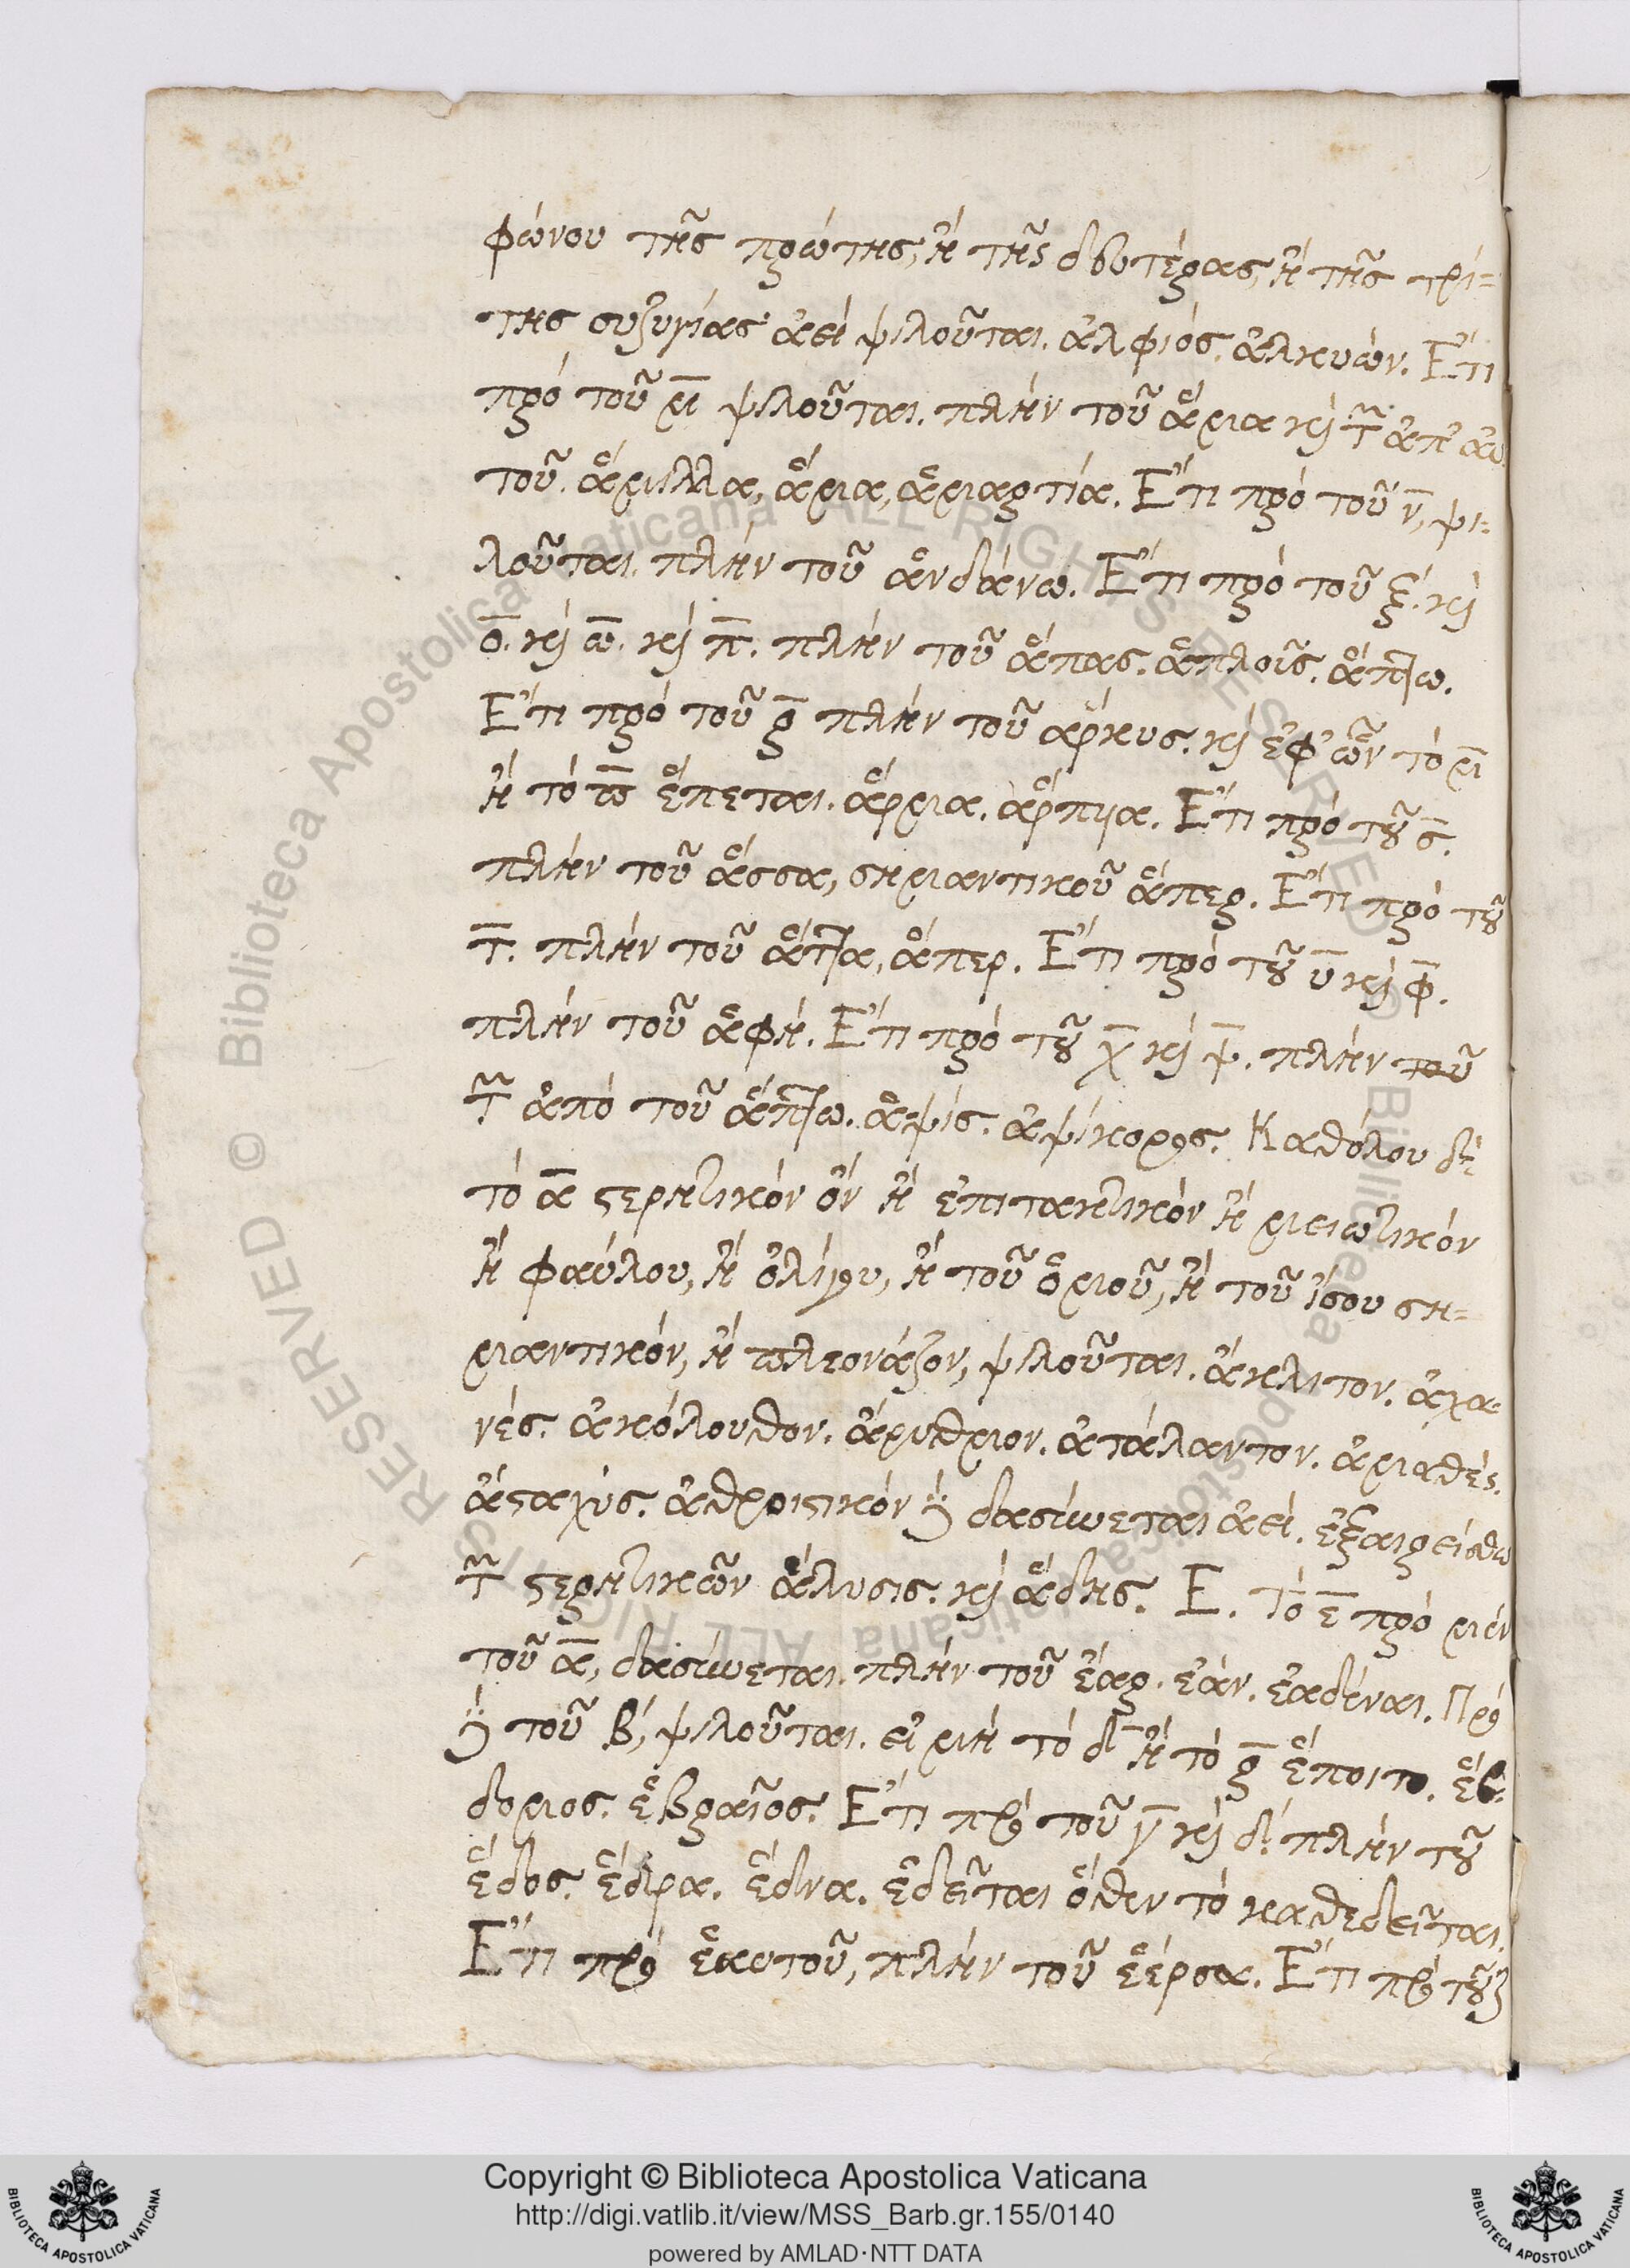 φώνου τῆς πρώτης, ἢ τῆς δευτέρας, ἢ τῆς τρί=
της συζυγίας ἀεὶ ψιλοῦται. ἀλφιός. ἀλκυών. Ἔτι
πρὸ τοῦ μ̄ ψιλοῦται. πλὴν τοῦ ἅμα καὶ τ̃ ἀπ' αὐ
τοῦ. ἅμιλλα, ἅμα, ἁμαρτία. Ἔτι πρὸ τοῦ ν̄, ψι=
λοῦται. πλὴν τοῦ ἁνδάνω. Ἔτι πρὸ τοῦ ξ̄. καὶ
ο̄. καὶ ω̄. καὶ π̄. πλὴν τοῦ ἅπας. ἁπλοῦς. ἅπτω.
Ἔτι πρὸ τοῦ ρ̄ πλὴν τοῦ ἅρκυς. καὶ ἐφ' ὧν τὸ μ̄
ἢ τὸ π̄ ἕπεται. ἅρμα. ἅρπυα. Ἔτι πρὸ τοῦ σ̄.
πλὴν τοῦ ἅσσα, σημαντικοῦ ἅπερ. Ἔτι πρὸ τοῦ
τ̄. πλὴν τοῦ ἅττα, ἅπερ. Ἔτι πρὸ τοῦ ῡ καὶ φ̄.
πλὴν τοῦ ἁφή. Ἔτι πρὸ τοῦ χ̄ καὶ ψ̄. πλὴν τοῦ
τ̃ ἀπὸ τοῦ ἅπτω. ἁψίς. ἁψίκορος. Καθόλου δὲ
τὸ ᾱ στερητικὸν ὂν ἢ ἐπιτακτικὸν ἢ μειωτικὸν
ἢ φαύλου, ἢ ὀλίγου, ἢ τοῦ ὁμοῦ, ἢ τοῦ ἴσου ση=
μαντικόν, ἢ πλεονάζον, ψιλοῦται. ἄκλιτον. ἀχα=
νές. ἀκόλουθον. ἄμυθμον. ἀτάλαντον. ἀμαθές.
ἄσταχυς. ἀθροιστικὸν δὲ δασύνεται ἀεί. ἐξαιρείσθω
τ̃ στερητικῶν ἅλυσις. καὶ ᾅδης. Ε. Τὸ ε̄ πρὸ μὲν
τοῦ ᾱ, δασύνεται. πλὴν τοῦ ἔαρ. ἐάν. ἐαδέναι. Πρὸ
δὲ τοῦ β̄, ψιλοῦται. εἰ μὴ τὸ δ̄ ἢ τὸ ρ̄ ἕποιτο. ἕβ=
δομος. ἑβραῖος. Ἔτι πρὸ τοῦ γ̄ καὶ δ̄. πλὴν τοῦ
ἕδος. ἕδρα. ἕδνα. ἑδεῖται ὅθεν τὸ καθεδεῖται.
Ἔτι πρὸ ἑαυτοῦ, πλὴν τοῦ ἑέρσα. Ἔτι πρὸ τοῦ ζ
Copyright © Biblioteca Apostolica Vaticana
http://digi.vatlib.it/view/MSS_Barb.gr.155/0140
powered by AMLAD·NTT DATA
BIBLIOTECA APOSTOLICA VATICANA
BIBLIOTECA APOSTOLICA VATICANA
© Biblioteca Apostolica Vaticana ALL RIGHTS RESERVED © Biblioteca Apostolica Vaticana ALL RIGHTS RESERVED